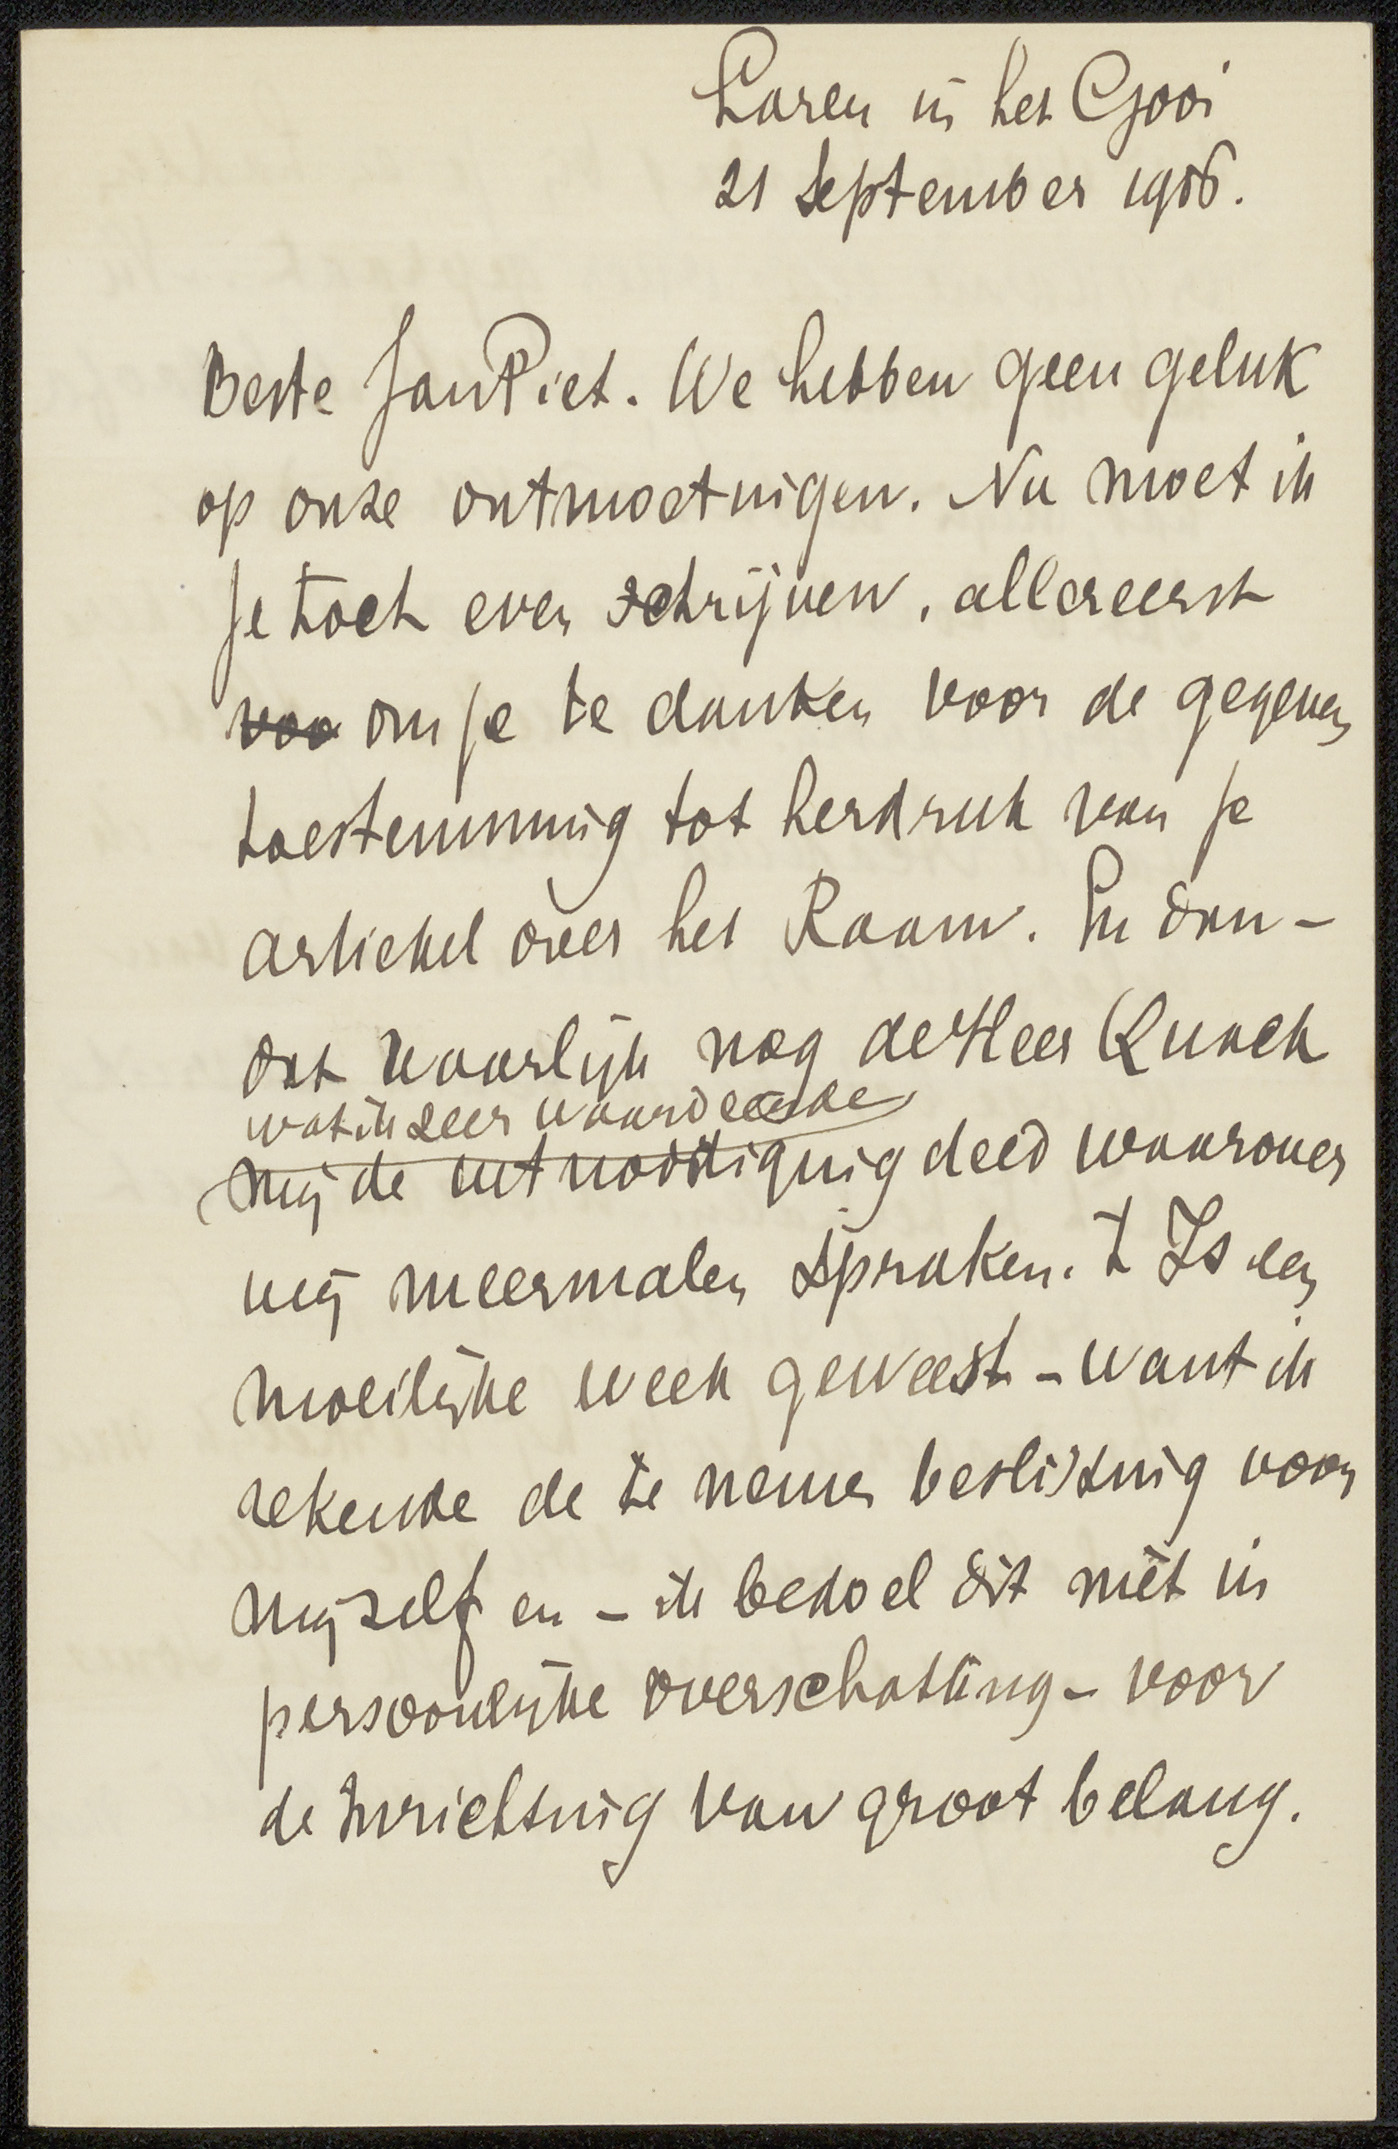 Laren in het Gooi
21 September 1906.
Beste JanPiet. We hebben geen geluk
op onze ontmoetingen. Nu moet ik
je toch even schrijven, allereerst
voo om je te danken voor de gegeven
toestemming tot herdruk van je
artiekel over het Raam. En dan –
dat waarlijk nog de Heer Quack
wat ik zeer waardeerde
mij de uitnoodiging deed waarover
wij meermalen spraken. 't Is een
moeilijke week geweest – want ik
rekende de te nemen beslissing voor
mijzelf en – ik bedoel dit niet in
persoonlijke overschatting – voor
de Inrichting van groot belang.